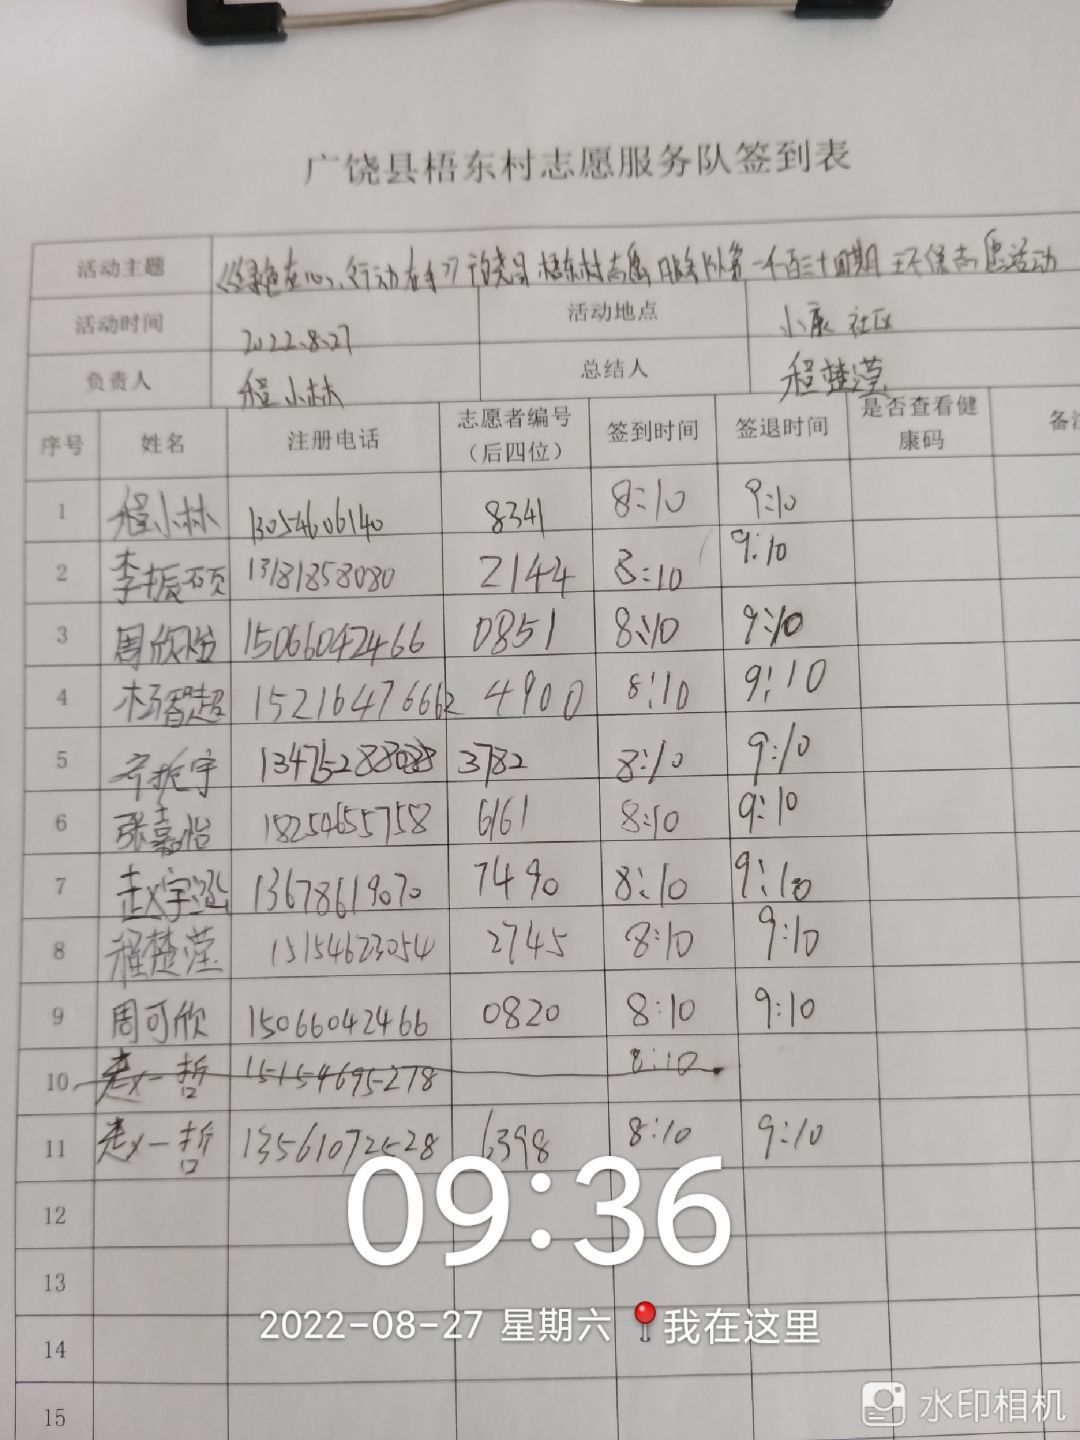 广饶县梧东村志愿服务队签到表
活动主题 《绿色在心、行动在手》广饶县梧东村志愿服务队第一千百三十四期环保志愿活动
活动时间 2022.8.27 活动地点 小康社区
负责人 程小林 总结人 程楚滢
序号 姓名 注册电话 志愿者编号（后四位） 签到时间 签退时间 是否查看健康码 备注
1 程小林 13054606140 8341 8:10 9:10
2 李振硕 13181858080 2144 8:10 9:10
3 周欣怡 15066042466 0851 8:10 9:10
4 杨智超 15216476662 4900 8:10 9:10
5 齐振宇 3782 8:10 9:10
6 张嘉怡 18254655758 6161 8:10 9:10
7 赵宇泓 13678619070 7490 8:10 9:10
8 程楚滢 15154623054 2745 8:10 9:10
9 周可欣 15066042466 0820 8:10 9:10
10 赵一哲 15154695278 8:10
11 赵一哲 13561072528 6398 8:10 9:10
12
13
14
15
09:36
2022-08-27 星期六 我在这里
水印相机